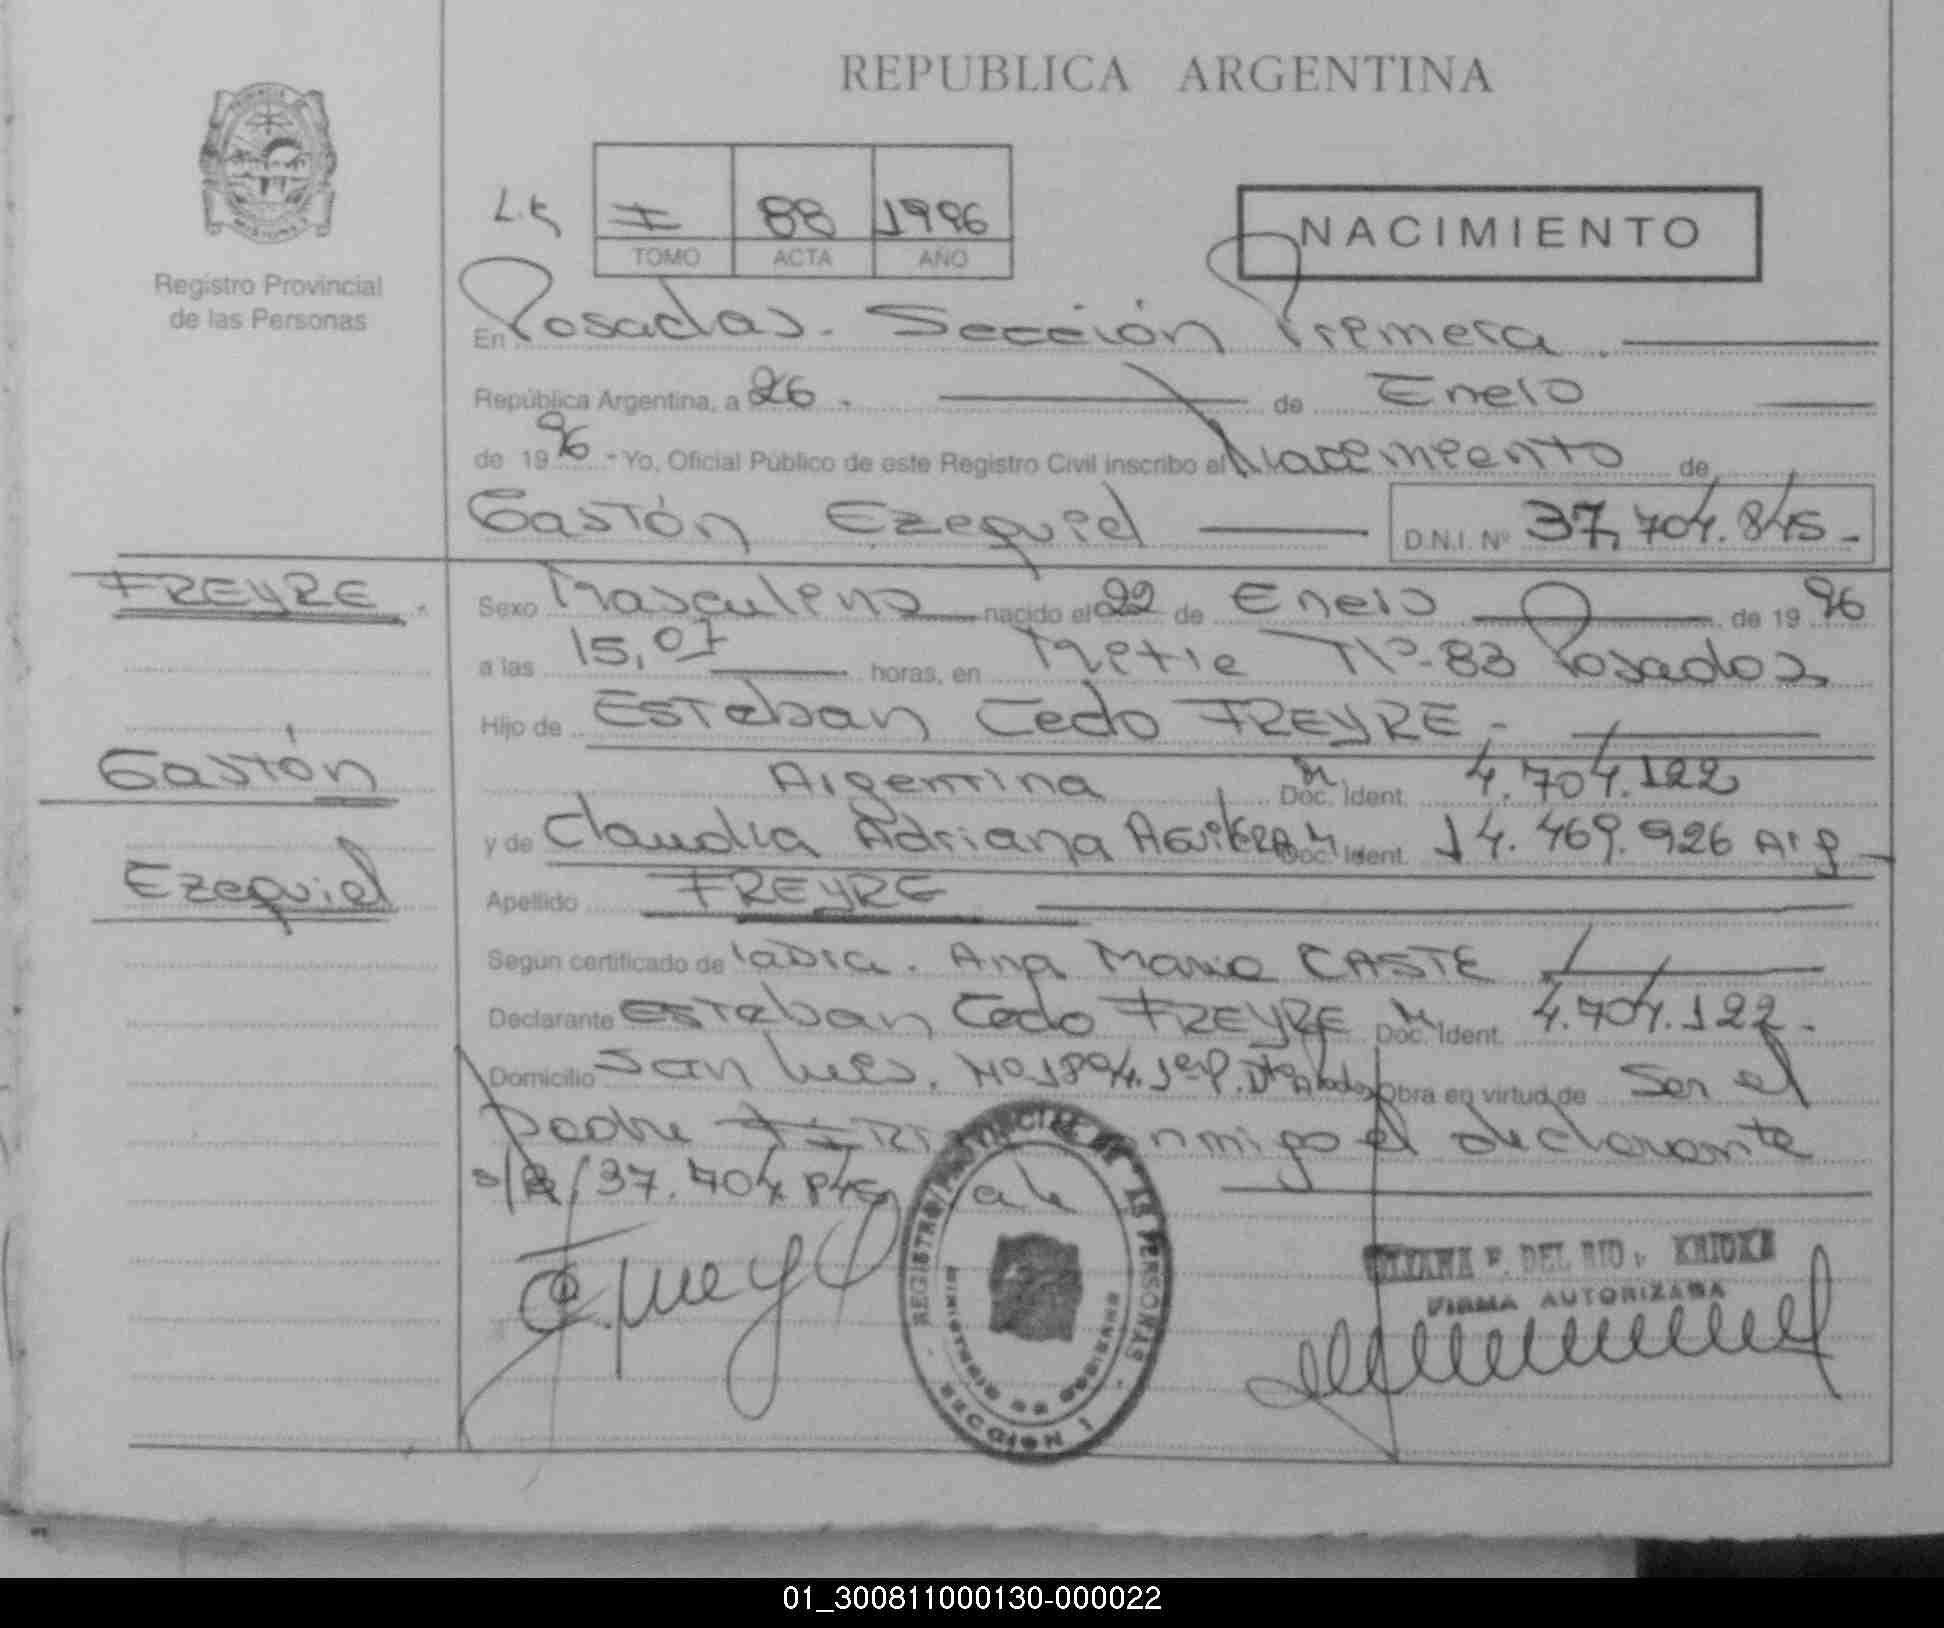 REPUBLICA ARGENTINA
I 88 1996
TOMO ACTA AÑO
NACIMIENTO
Registro Provincial
de las Personas
En Posadas. Sección Primera.
República Argentina, a 26. de Enero
de 1996 - Yo, Oficial Público de este Registro Civil inscribo el Nacimiento de
Gastón Ezequiel D.N.I. Nº 37.704.845.-
FREYRE.
Sexo Masculino nacido el 22 de Enero de 1996
a las 15,07 horas, en Nº 83 Posadas
Hijo de Esteban Cedo FREYRE.-
Gastón
Argentina Doc. Ident. 4.704.122
y de Claudia Adriana Doc. Ident. 14.469.926 Arg
Ezequiel
Apellido FREYRE
Segun certificado de la Dra. Ana Maria CASTE
Declarante Esteban Cedo FREYRE Doc. Ident. 4.704.122.-
Domicilio San Luis. Obra en virtud de Ser el
padre conmigo el declarante
37.704.845 vale
REGISTRO PROVINCIAL DE LAS PERSONAS
MINISTERIO DE GOBIERNO
SECCION 1
F. DEL RIO
FIRMA AUTORIZADA
01_300811000130-000022